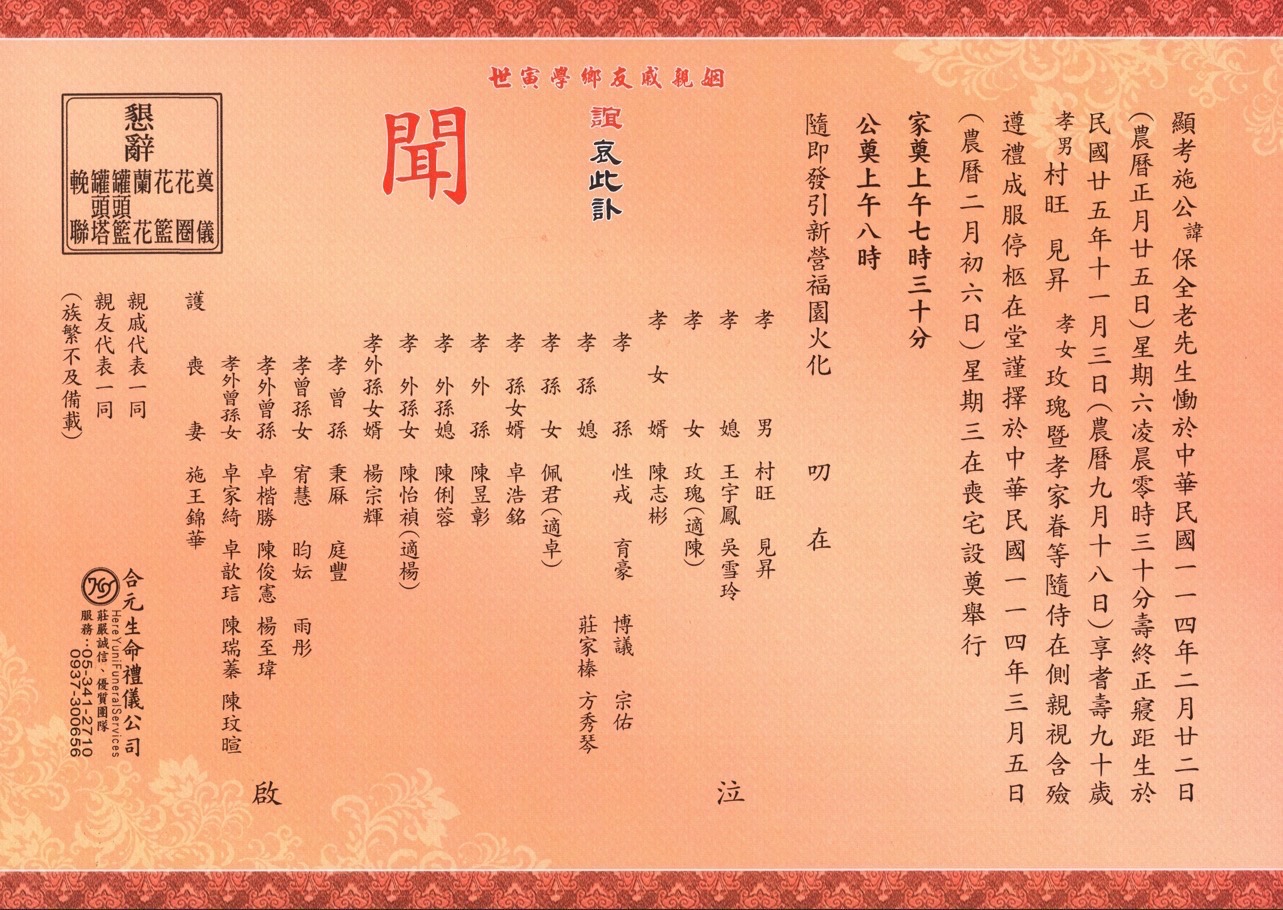 顯考施公諱保全老先生慟於中華民國一一四年二月廿二日
（農曆正月廿五日）星期六凌晨零時三十分壽終正寢距生於
民國廿五年十一月三日（農曆九月十八日）享耆壽九十歲
孝男村旺 見昇 孝女玫瑰暨孝家眷等隨侍在側親視含殮
遵禮成服停柩在堂謹擇於中華民國一一四年三月五日
（農曆二月初六日）星期三在喪宅設奠舉行
家奠上午七時三十分
公奠上午八時
隨即發引新營福園火化 叨在
姻親戚友鄉學寅世
誼哀此訃
聞
孝男 村旺 見昇
孝媳 王宇鳳 吳雪玲
孝女 玫瑰（適陳）
孝女婿 陳志彬
孝孫 性戎 育豪 博議 宗佑
孝孫媳 莊家榛 方秀琴
孝孫女 佩君（適卓）
孝孫女婿 卓浩銘
孝外孫 陳昱彰
孝外孫媳 陳俐蓉
孝外孫女 陳怡禎（適楊）
孝外孫女婿 楊宗輝
孝曾孫 秉厤 庭豐
孝曾孫女 宥慧 昀妘 雨彤
孝外曾孫 卓楷勝 陳俊憲 楊至瑋
孝外曾孫女 卓家綺 卓歆琂 陳瑞蓁 陳玟暄
護喪妻 施王錦華
泣
啟
親戚代表一同
親友代表一同
（族繁不及備載）
懇辭
奠儀
花圈
花籃
蘭花
罐頭籃
罐頭塔
輓聯
合元生命禮儀公司
HereYuniFuneralServices
莊嚴誠信、優質團隊
服務：05-341-2710
0937-300656